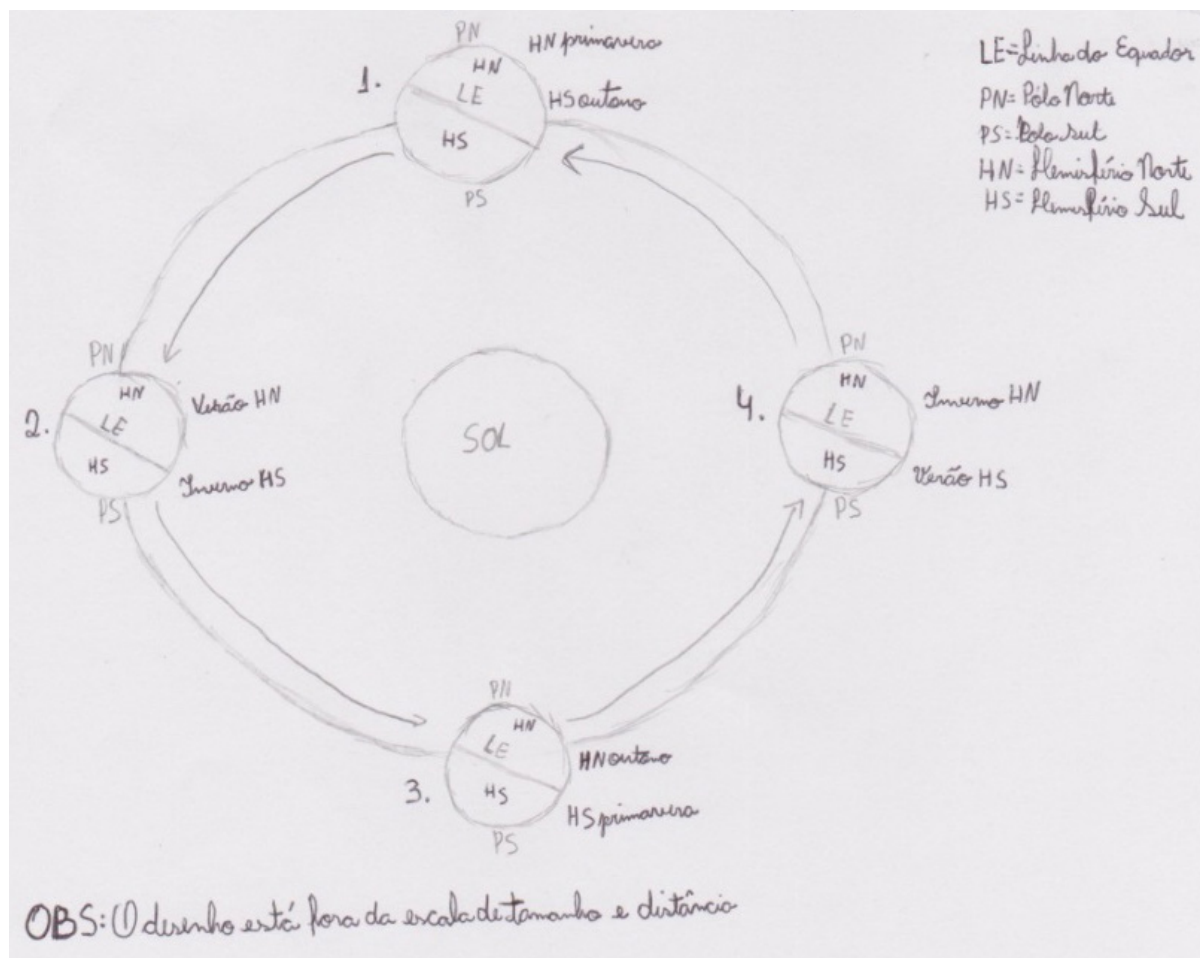 PN
HN primavera
1.
HN
LE
HS outono
HS
PS
LE=Linha do Equador
PN= Pólo Norte
PS= Pólo Sul
HN= Hemisfério Norte
HS= Hemisfério Sul
PN
HN
2.
LE
HS
PS
Verão HN
Inverno HS
SOL
PN
HN
4.
LE
HS
PS
Inverno HN
Verão HS
PN
HN
LE
3.
HS
PS
HN outono
HS primavera
OBS: O desenho está fora da escala de tamanho e distância